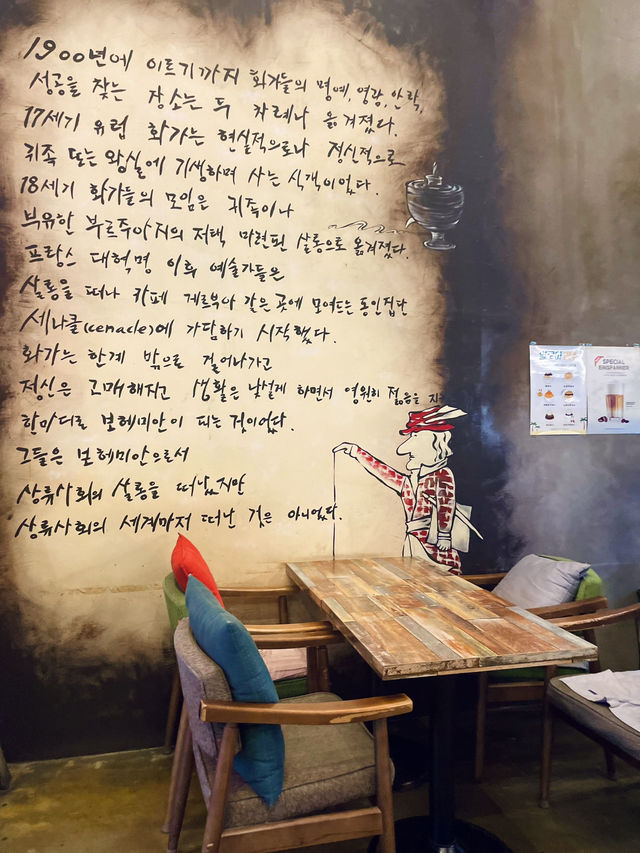 1900년에 이르기까지 화가들의 명예, 영광, 안락,
성공을 찾는 장소는 두 차례나 옮겨졌다.
17세기 유럽 화가는 현실적으로나 정신적으로
귀족 또는 왕실에 기생하며 사는 식객이었다.
18세기 화가들의 모임은 귀족이나
부유한 부르주아지의 저택 마련된 살롱으로 옮겨졌다.
프랑스 대혁명 이후 예술가들은
살롱을 떠나 카페 게르부아 같은 곳에 모여드는 동인집단
세나클(cenacle)에 가담하기 시작했다.
화가는 한계 밖으로 걸어나가고
정신은 고매해지고 생활은 낯설게 하면서 영원히 젊음을
한마디로 보헤미안이 되는 것이었다.
그들은 보헤미안으로서
상류사회의 살롱을 떠났지만
상류사회의 세계마저 떠난 것은 아니었다.
SPECIAL